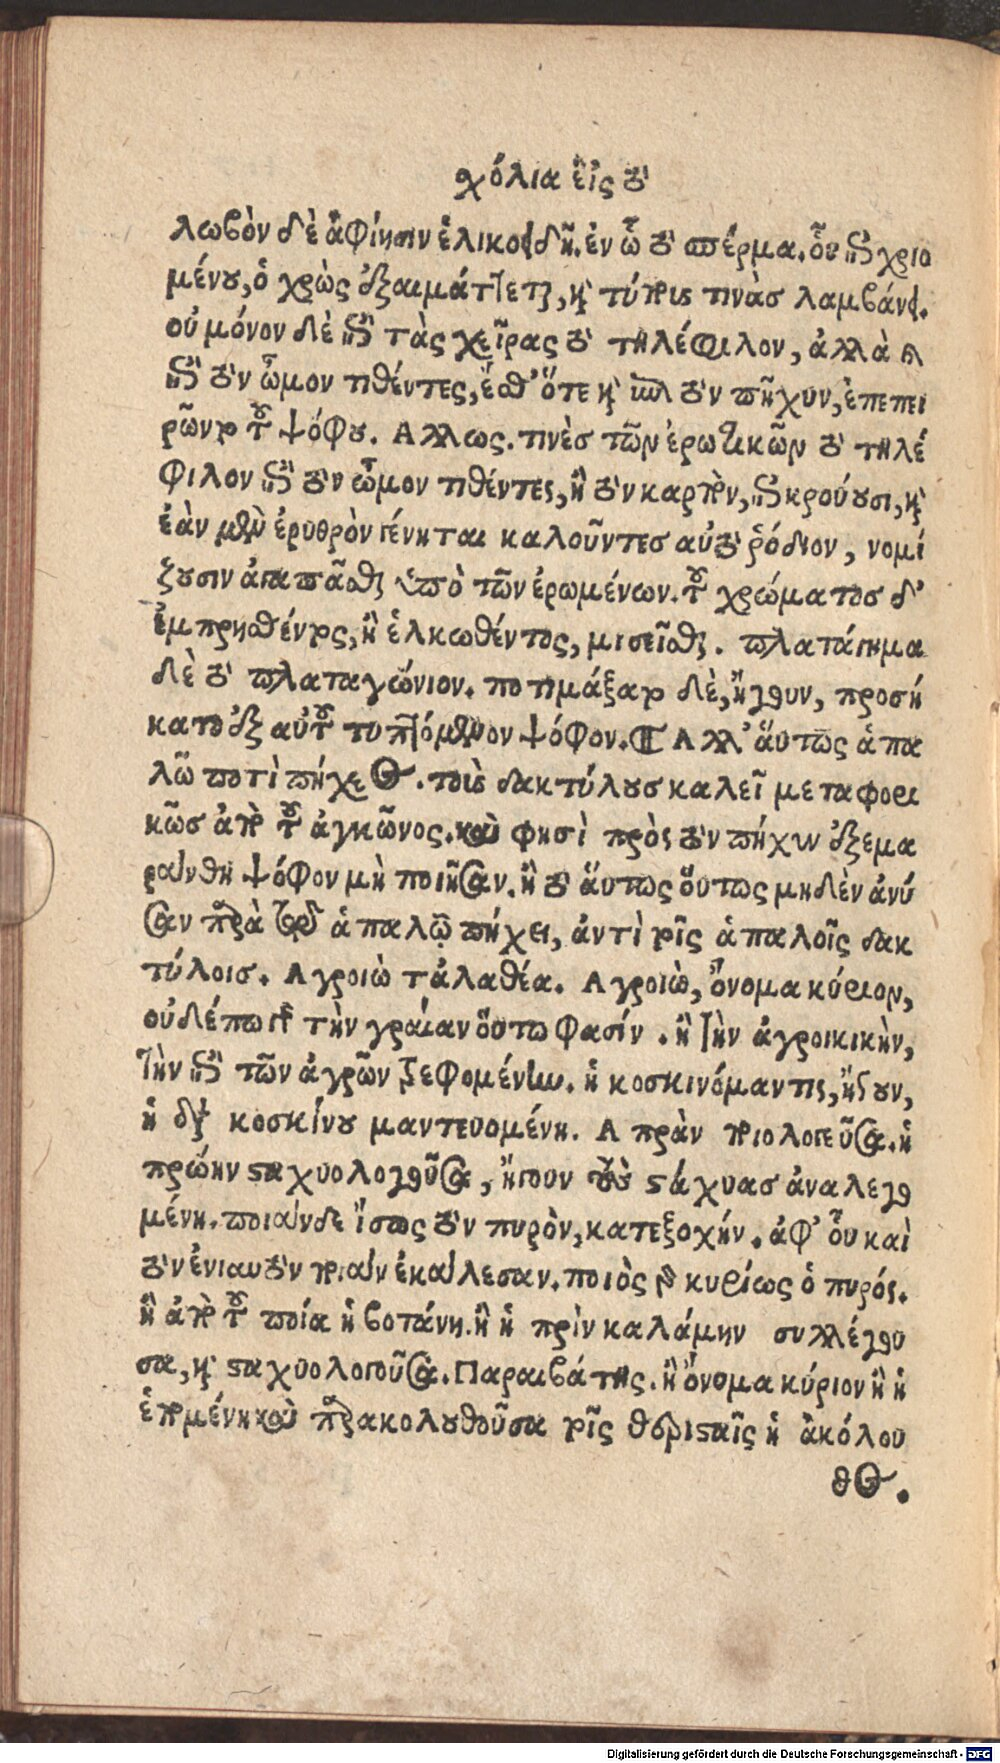 σχόλια εἰς τὸ
λωβὸν δὲ ἀφίησιν ἑλικοειδῆ. ἐν ᾧ τὸ σπέρμα. οὗ ἐπιχριο
μένου, ὁ χρὼς ἐξαιμάττεται, καὶ τύπους τινὰσ λαμβάνει.
οὐ μόνον δὲ ἐπὶ τὰς χεῖρας τὸ τηλέφιλον, ἀλλὰ καὶ
ἐπὶ τὸν ὦμον τιθέντες, ἔσθ' ὅτε καὶ ἐπὶ τὸν πῆχυν, ἐπεπει
ρῶντο τοῦ ψόφου. Αλλως. τινὲσ τῶν ἐρωτικῶν τὸ τηλέ
φιλον ἐπὶ τὸν ὦμον τιθέντες, ἢ τὸν καρπὸν, ἐπικρούουσι, καὶ
ἐὰν μὲν ἐρυθρὸν γένηται καλοῦντεσ αὐτὸ ῥόδιον, νομί
ζουσιν ἀγαπᾶσθαι ὑπὸ τῶν ἐρωμένων. τοῦ χρώματοσ δ'
ἐμπρησθέντος, ἢ ἑλκωθέντος, μισεῖσθαι. πλατάγημα
δὲ τὸ πλαταγώνιον. ποτιμάξατο δὲ, ἤγουν, προσή
κατο ἐξ αὐτοῦ τυπτόμενον ψόφον. ¶ Αλλ' αὕτως ἁπα
λῶ ποτὶ πήχεος. τοὺς δακτύλουσ καλεῖ μεταφορι
κῶσ ἀπὸ τοῦ ἀγκῶνος. καὶ φησὶ πρὸς τὸν πήχυν ἐξεμα
ράνθη ψόφον μὴ ποιῆσαν. ἢ τὸ αὕτως οὕτως μηδὲν ἀνύ
σαν παρὰ τῷ ἁπαλῷ πήχει, ἀντὶ τοῖς ἁπαλοῖς δακ
τύλοισ. Αγροιὼ τἀλαθέα. Αγροιὼ, ὄνομα κύριον,
οὐδέπω γὰρ τὴν γραίαν οὕτω φασίν. ἢ τὴν ἀγροικικὴν,
τὴν ἐπὶ τῶν ἀγρῶν τρεφομένην. ἡ κοσκινόμαντις, ἤγουν,
ἡ διὰ κοσκίνου μαντευομένη. Α πρὰν ποιολογεῦσα. ἡ
πρώην σταχυολογοῦσα, ἤγουν τοὺς στάχυασ ἀναλεγο
μένη. ποίαν δὲ ἴσως τὸν πυρὸν, κατεξοχήν. ἀφ' οὗ καὶ
τὸν ἐνιαυτὸν ποίαν ἐκάλεσαν. ποιὸς γὰρ κυρίως ὁ πυρός.
ἢ ἀπὸ τοῦ ποία ἡ βοτάνη. ἢ ἡ πρὶν καλάμην συλλέγου
σα, καὶ σταχυολογοῦσα. Παραιβάτης. ἢ ὄνομα κύριον ἢ ἡ
ἑπομένη καὶ παρακολουθοῦσα τοῖς θερισταῖς ἡ ἀκόλου
θος.
Digitalisierung gefördert durch die Deutsche Forschungsgemeinschaft - DFG